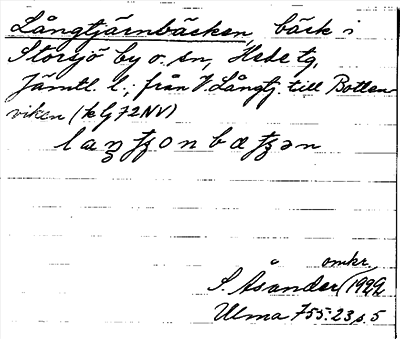 Långtjärnbäcken, bäck i
Storsjö by o. sn, Hede tg,
Jämtl. l., från V. Långtj. till Botten-
viken (k bl 72 NV)
omkr.
S. Åsander (1922
Ulma 755:23, s. 5